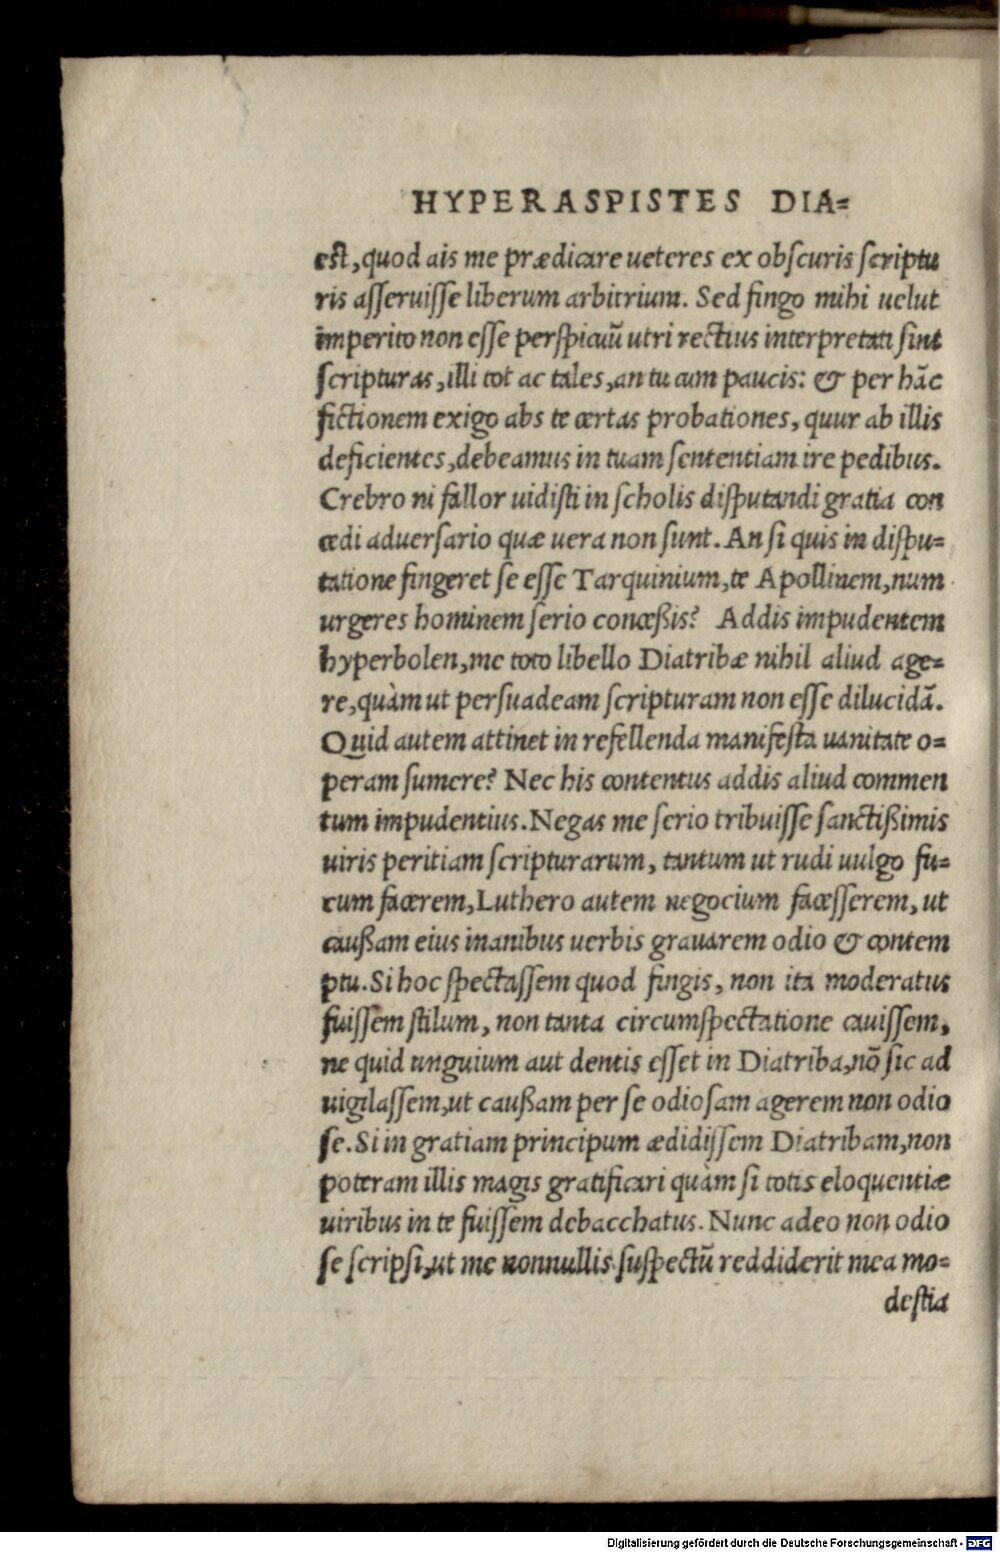 HYPERASPISTES DIA=
est, quod ais me prædicare ueteres ex obscuris scriptu
ris asseruisse liberum arbitrium. Sed fingo mihi uelut
imperito non esse perspicuū utri rectius interpretati sint
scripturas, illi tot ac tales, an tu cum paucis: & per hāc
fictionem exigo abs te certas probationes, quur ab illis
deficientes, debeamus in tuam sententiam ire pedibus.
Crebro ni fallor uidisti in scholis disputandi gratia con
cedi aduersario quæ uera non sunt. An si quis in dispu=
tatione fingeret se esse Tarquinium, te Apollinem, num
urgeres hominem serio concessis? Addis impudentem
hyperbolen, me toto libello Diatribæ nihil aliud age=
re, quàm ut persuadeam scripturam non esse dilucidā.
Quid autem attinet in refellenda manifesta uanitate o=
peram sumere? Nec his contentus addis aliud commen
tum impudentius. Negas me serio tribuisse sanctißimis
uiris peritiam scripturarum, tantum ut rudi uulgo fu=
cum facerem, Luthero autem negocium facesserem, ut
caußam eius inanibus uerbis grauarem odio & contem
ptu. Si hoc spectassem quod fingis, non ita moderatus
fuissem stilum, non tanta circumspectatione cauissem,
ne quid unguium aut dentis esset in Diatriba, nō sic ad
uigilassem, ut caußam per se odiosam agerem non odio
se. Si in gratiam principum ædidissem Diatribam, non
poteram illis magis gratificari quàm si totis eloquentiæ
uiribus in te fuissem debacchatus. Nunc adeo non odio
se scripsi, ut me nonnullis suspectū reddiderit mea mo=
destia
Digitalisierung gefördert durch die Deutsche Forschungsgemeinschaft - DFG